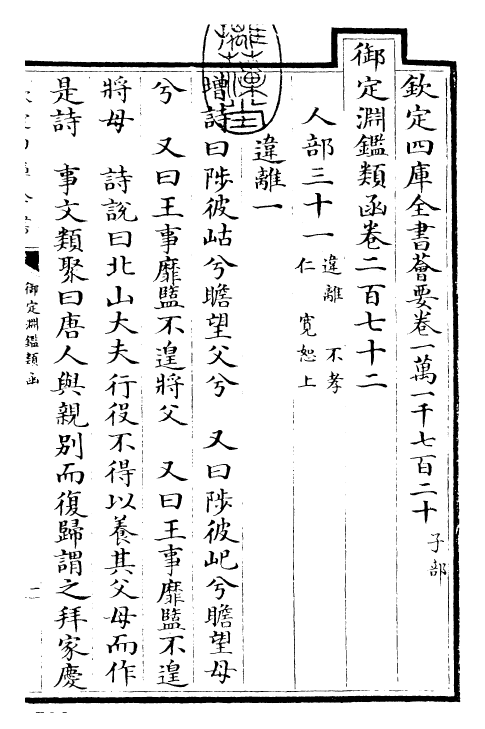 欽定四庫全書薈要卷一萬一千七百二十 子部
御定淵鑑類函卷二百七十二
人部三十一 違離 不孝 仁 寬恕上
違離一
增詩曰陟彼岵兮瞻望父兮 又曰陟彼屺兮瞻望母
兮 又曰王事靡盬不遑將父 又曰王事靡盬不遑
將母 詩說曰北山大夫行役不得以養其父母而作
是詩 事文類聚曰唐人與親別而復歸謂之拜家慶
御定淵鑑類函